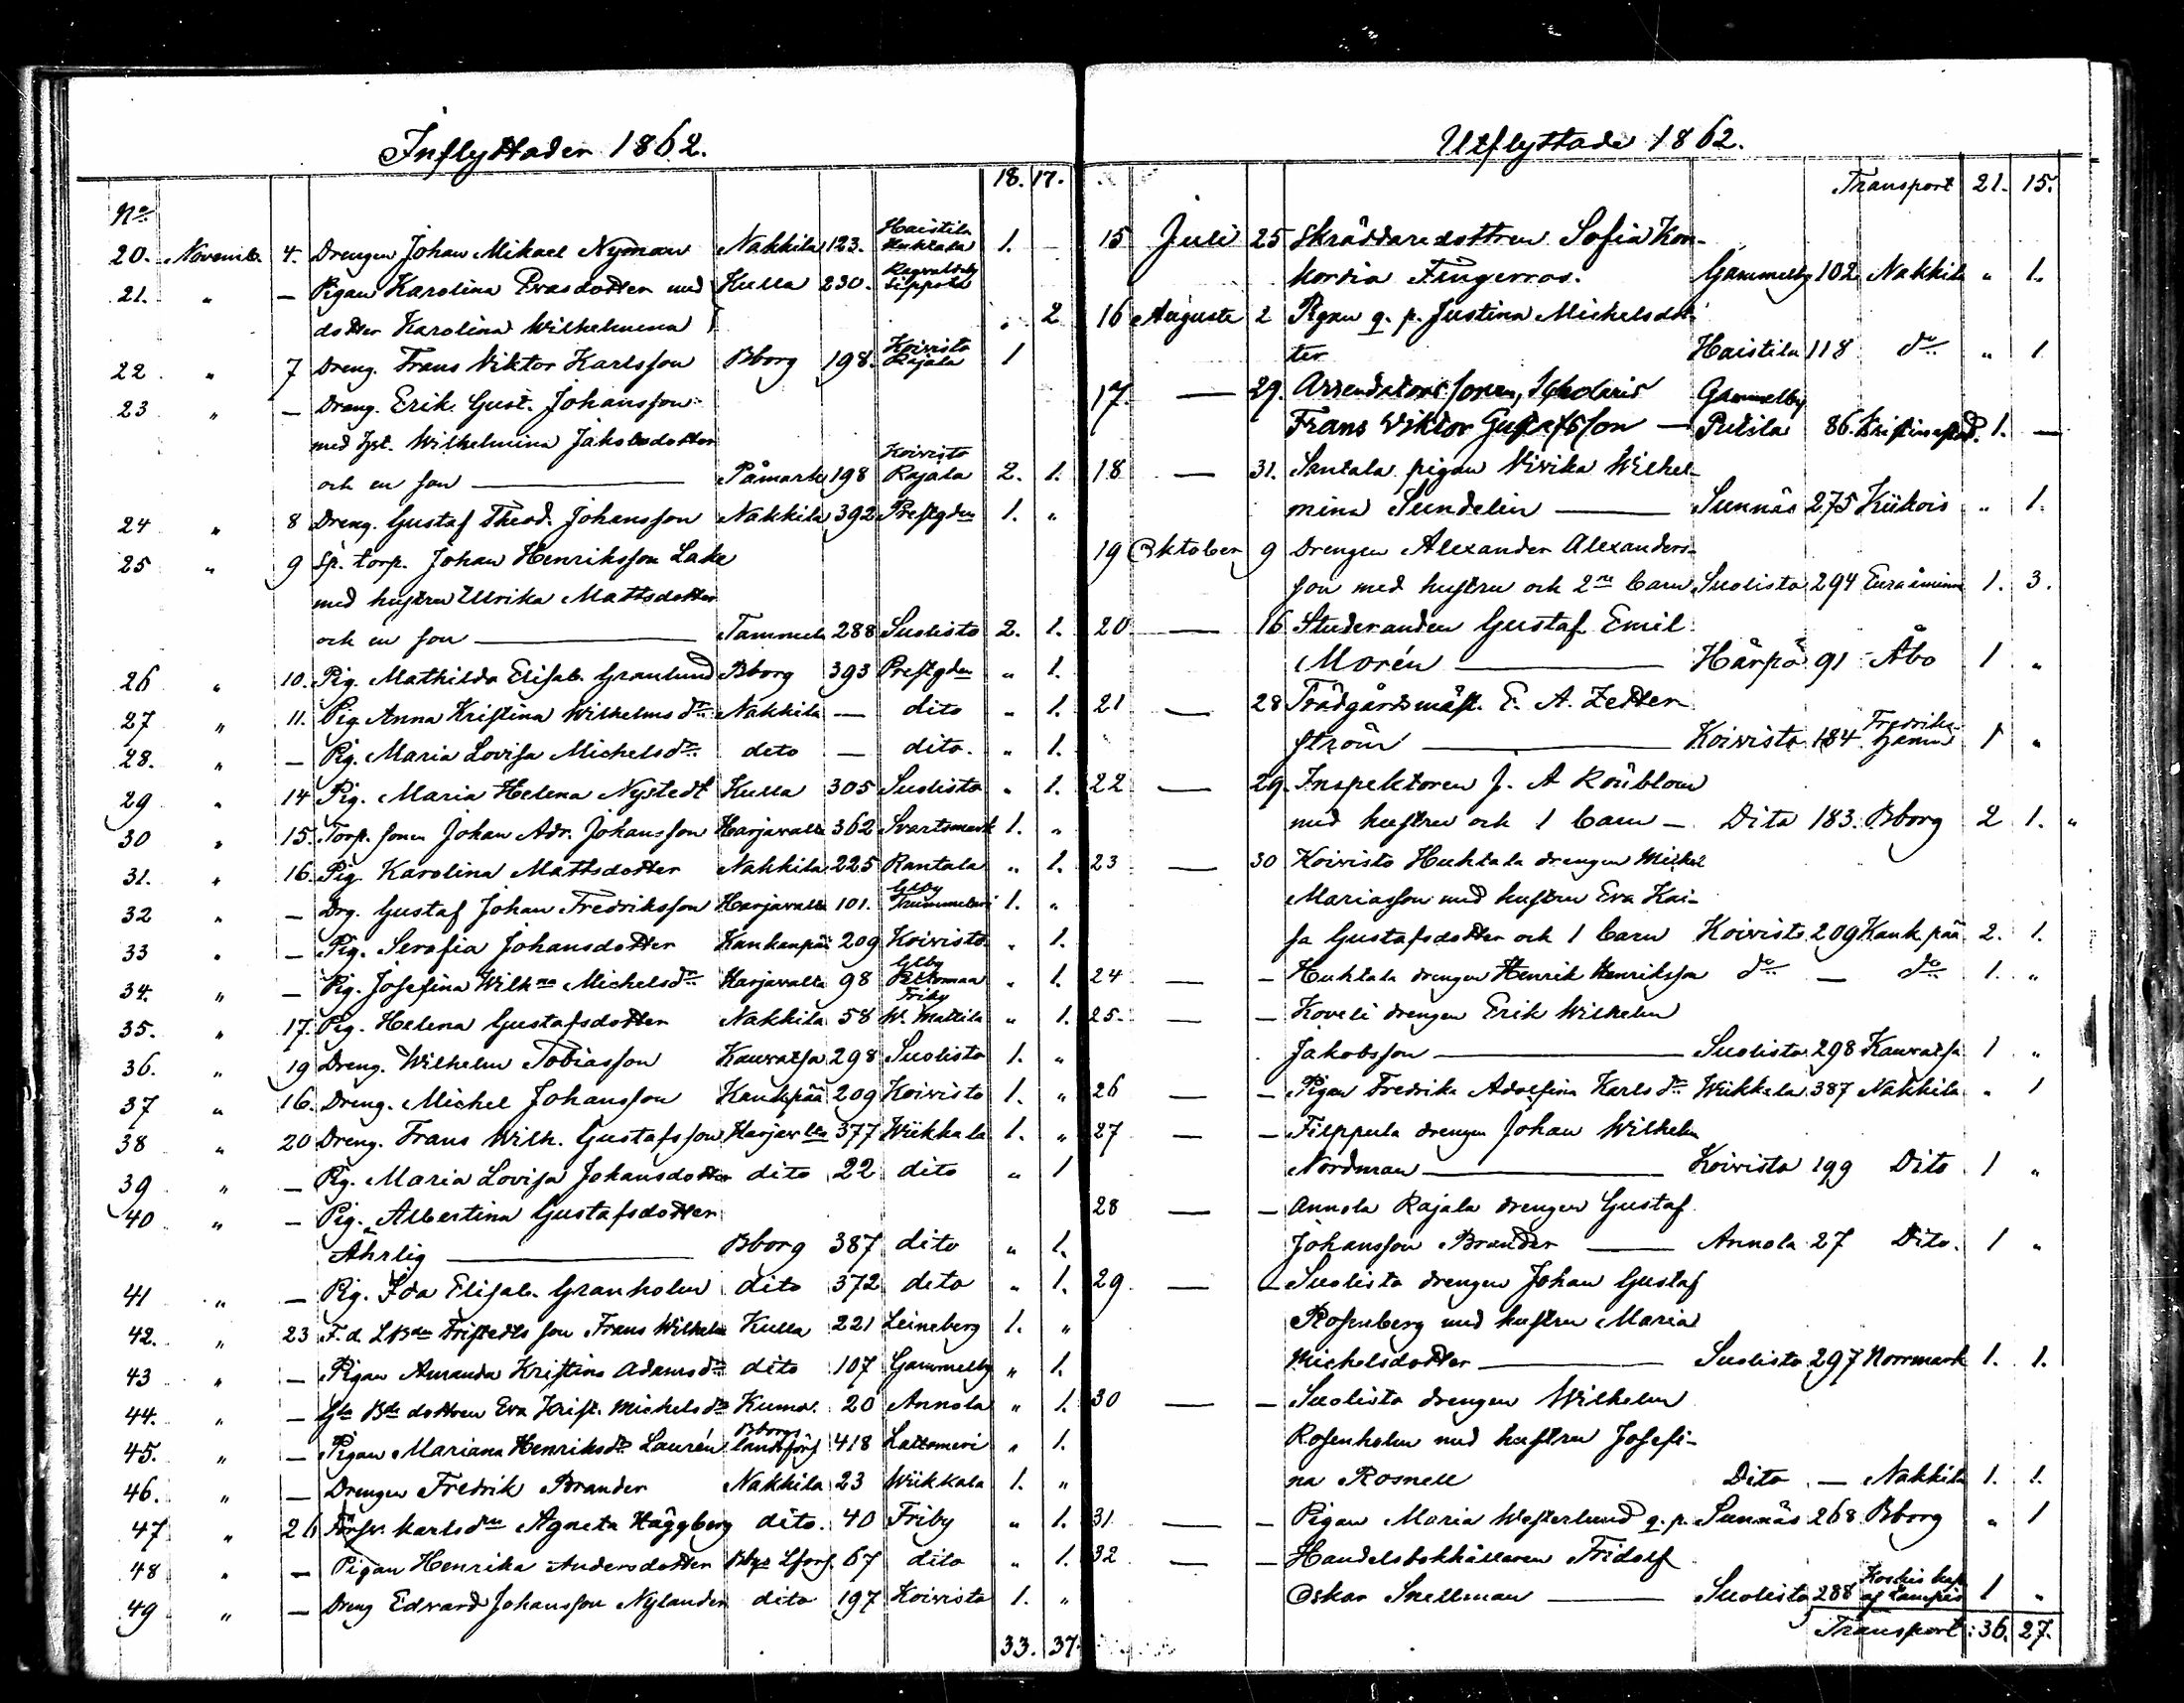 Inflyttader 1862.
18. 17.
No
20. Novemb. 4. Drengen Johan Mikael Nyman Nakkila 123. Haistila Huhtala 1. —
21. " — Pigan Karolina Evasdotter med Kulla 230. Ragvaldsby Sippola
dotter Karolina Wilhelmina " 2
22 " 7 Dreng. Frans Viktor Karlsson Bborg 198. Koivisto Rajala 1
23 " — Dreng. Erik Gust. Johansson
med hst. Wilhelmina Jakobsdotter
och en son — Påmark 198 Koivisto Rajala 2. 1.
24 " 8 Dreng. Gustaf Theod. Johansson Nakkila 392 Prestgden 1. "
25 " 9 Sp. torp. Johan Henriksson Lake
med hustru Ulrika Mattsdotter
och en son — Tammela 288 Suolisto 2. 1.
26 " 10. Pig. Mathilda Elisab. Granlund Bborg 393 Prestgden " 1.
27 " 11. Pig. Anna Kristina Wilhelms dr Nakkila — dito " 1.
28. " — Pig. Maria Lovisa Michelsdr dito — dito. " 1.
29 " 14 Pig. Maria Helena Nystedt Kulla 305 Suolisto " 1.
30 " 15. Torp. sonen Johan Adr. Johansson Harjavalta 362 Svartsmark 1. "
31. " 16. Pig. Karolina Mattsdotter Nakkila 225 Rantala " 1.
32 " — Drg. Gustaf Johan Fredriksson Harjavalta 101. Glby 1. "
33 " — Pig. Serafia Johansdotter Kankanpää 209 Koivisto " 1.
34. " — Pig. Josefina Wilhna Michelsdr Harjavalta 98 Glby Peltomaa " 1.
35. " 17. Pig. Helena Gustafsdotter Nakkila 58 Friby W. Mattila " 1.
36. " 19 Dreng. Wilhelm Tobiasson Kauvatsa 298 Suolisto 1. "
37 " 16. Dreng. Michel Johansson Kankpää 209 Koivisto 1. "
38 " 20 Dreng. Frans Wilh. Gustafsson Harjavlta 377 Wiikkala 1. "
39 " — Pig. Maria Lovisa Johansdotter dito 22 dito " 1
40 " — Pig. Albertina Gustafsdotter
Ährlig — Bborg 387 dito " 1.
41 " — Pig. Ida Elisab. Granholm dito 372 dito " 1.
42. " 23 F.d. LBdn Fristedts son Frans Wilhelm Kulla 221 Leineberg 1. "
43 " — Pigan Amanda Kristina Adamsdr dito 107 Gammelby " 1.
44. " — Gla Bde dottren Eva Krist. Michelsdr Kumo. 20 Annola " 1.
45. " — Pigan Mariana Henriksdr Laurén Bborgs landsförs 418 Lattomeri " 1.
46. " — Drengen Fredrik Brander Nakkila 23 Wiikkala 1. "
47 " 26 Karlsdtr Agneta Häggberg dito. 40 Friby " 1.
48 " — Pigan Henrika Andersdotter Bbgs Lförs. 67 dito " 1.
49 " — Dreng Edvard Johansson Nylander dito 197 Koivisto 1. "
33. 37.
Utflyttade 1862.
Transport 21. 15.
15 Juli 25 Skräddaredottren Sofia Kon-
kordia Fingerroos. Gammelby 102 Nakkila " 1.
16 Augusti 2 Pigan q. p. Justina Michelsdot-
ter Haistila 118 do " 1
17. — 29. Arrendators sonen, Scholaris Gammelby
Frans Viktor Gustafsson — Putila 86. Kristinestad. 1. —
18 — 31. Santala pigan Vivika Wilhel-
mina Sundelin — Sunnäs 275 Kiikois " 1.
19 Oktober 9 Drengen Alexander Alexanders-
son med hustru och 2ne barn Suolisto 294 Euraåminne 1. 3.
20 — 16 Studeranden Gustaf Emil
Morén — Hårpö 91 Åbo 1 "
21 — 28 Trädgårdsmäst. E. A. Zetter
ström — Koivisto 184 Fredrikshamn 1 "
22 — 29. Inspektoren J. A Rönblom
med hustru och 1 barn — Dito 183. Bborg 2 1. "
23 — 30 Koivisto Huhtala drengen Mickel
Mariasson med hustru Eva Kai-
sa Gustafsdotter och 1 barn Koivisto 209 Kankpää 2. 1.
24 — — Huhtala drengen Henrik Henriksson do — do 1. "
25. — — Koveli drengen Erik Wilhelm
Jakobsson — Suolisto 298 Kauvatsa 1 "
26 — — Pigan Fredrika Adolfina Karlsdr Wiikkala 387 Nakkila " 1
27 — — Filppula drengen Johan Wilhelm
Nordman — Koivisto 199 Dito 1 "
28 — — Annola Rajala drengen Gustaf
Johansson Brander — Annola 27 Dito. 1 "
29 — — Suolisto drengen Johan Gustaf
Rosenberg med hustru Maria
Michelsdotter — Suolisto 297 Norrmark 1. 1.
30 — — Suolisto drengen Wilhelm
Rosenholm med hustru Josefi-
na Rosnell Dito — Nakkila 1. 1.
31 — — Pigan Maria Westerlund q. p. Sunnäs 268 Bborg " 1
32 — — Handelsbokhållaren Fridolf
Oskar Snellman — Suolisto 288 Koskis kap. af Lampis 1 "
Transport: 36. 27.